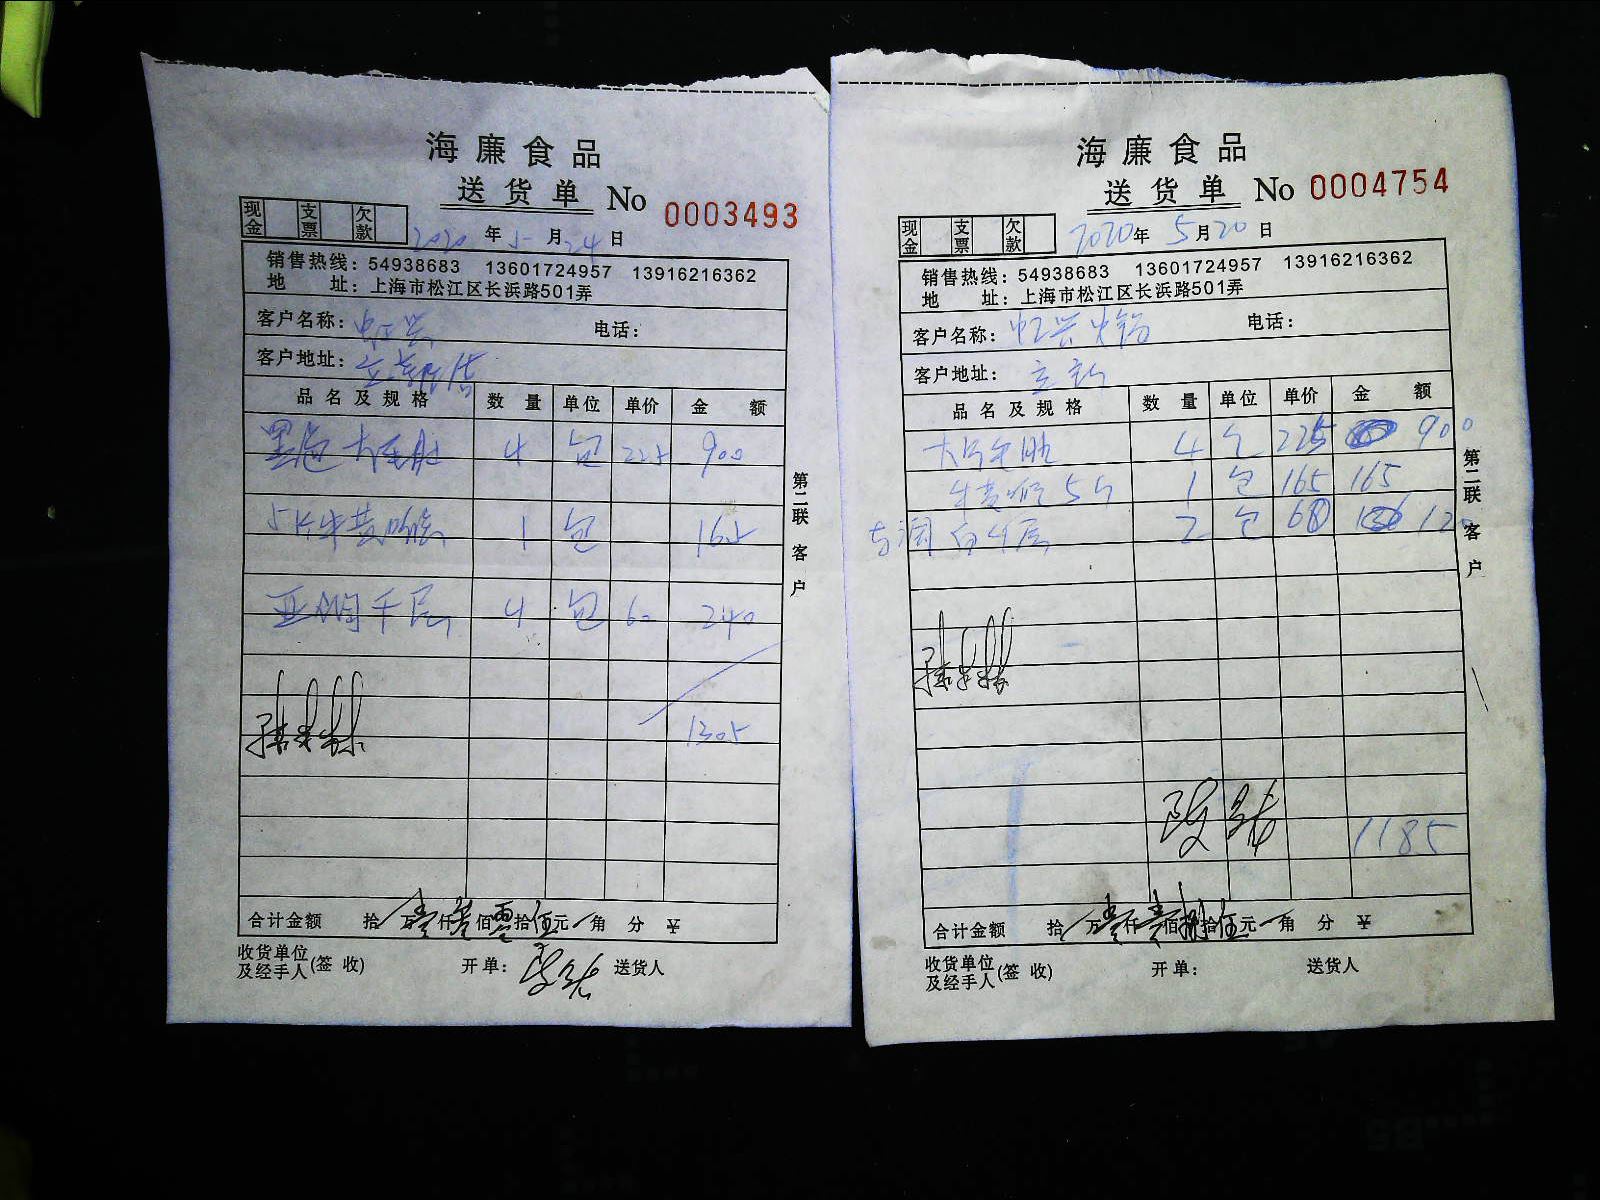 海廉食品
送货单 No 0003493
现金 支票 欠款
2020年5月24日
销售热线：54938683 13601724957 13916216362
地 址：上海市松江区长浜路501弄
客户名称： 电话：
客户地址：
品名及规格 数量 单位 单价 金额
黑色大毛肚 4 包 225 900
5斤牛黄喉 1 包 165
千层 4 包 60 240
1305
合计金额 拾 万壹仟叁佰零拾伍元 角 分 ¥
收货单位及经手人(签收) 开单： 送货人
第二联 客户
海廉食品
送货单 No 0004754
现金 支票 欠款
2020年5月20日
销售热线：54938683 13601724957 13916216362
地 址：上海市松江区长浜路501弄
客户名称：红兴火锅 电话：
客户地址：
品名及规格 数量 单位 单价 金额
大片毛肚 4 包 225 900
牛黄喉 5斤 1 包 165 165
白千层 2 包 60 120
1185
合计金额 拾 万壹仟壹佰捌拾伍元 角 分 ¥
收货单位及经手人(签收) 开单： 送货人
第二联 客户